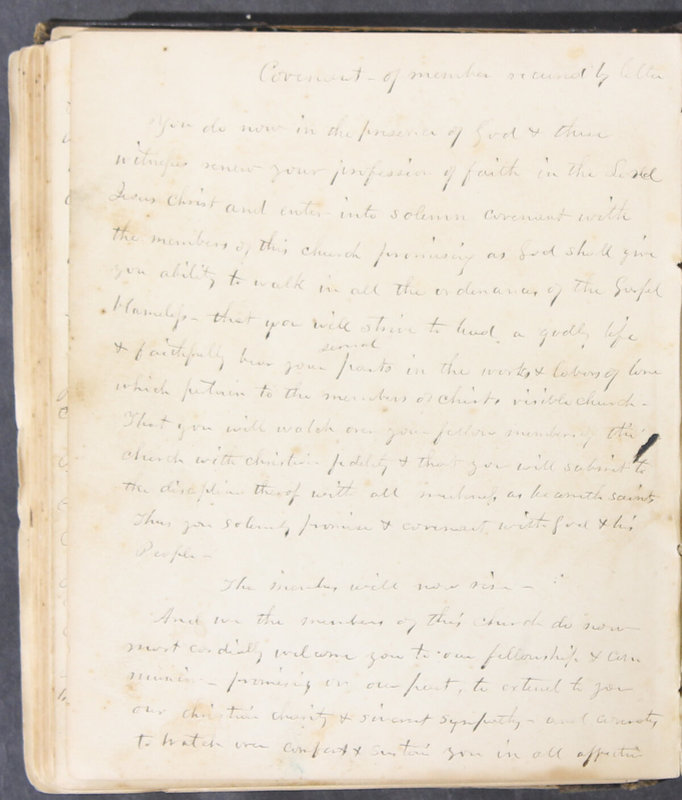 Covenant - of member received by letter
You do now in the presence of God & these
witnesses renew your profession of faith in the Lord
Jesus Christ and enter into solemn covenant with
the members of this church promising as God shall give
you ability to walk in all the ordinances of the Gospel
blameless - that you will strive to lead a godly life
several
& faithfully bear your parts in the works & labors of love
which pertain to the members of Christs visible church -
That you will watch over your fellow members of this
church with christian fidelity & that you will submit to
the discipline thereof with all meekness as becometh saints
Thus you solemnly promise & covenant with God & his
People -
The members will now rise -
And we the members of this church do now
most cordially welcome you to our fellowship & com
munion - promising on our part, to extend to you
our christian charity & sincerest sympathy - and
to watch over comfort & sustain you in all